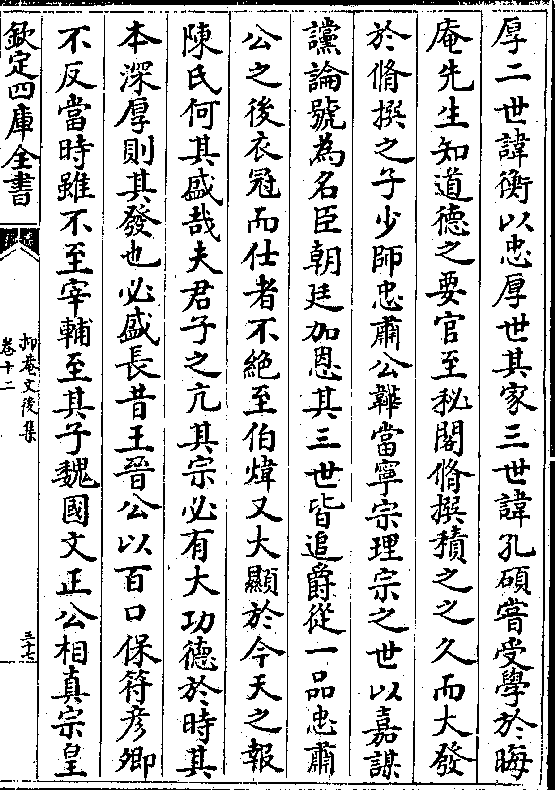 厚二世諱衡以忠厚世其家三世諱孔碩嘗受學於晦
庵先生知道德之要官至秘閣脩撰積之之久而大發
於脩撰之子少師忠肅公韡當寧宗理宗之世以嘉謀
讜論號為名臣朝廷加恩其三世皆追爵從一品忠肅
公之後衣冠而仕者不絕至伯煒又大顯於今天之報
陳氏何其盛哉夫君子之亢其宗必有大功德於時其
本深厚則其發也必盛長昔王晉公以百口保符彥卿
不反當時雖不至宰輔至其子魏國文正公相真宗皇
欽定四庫全書
抑菴文後集
卷十二
三十七